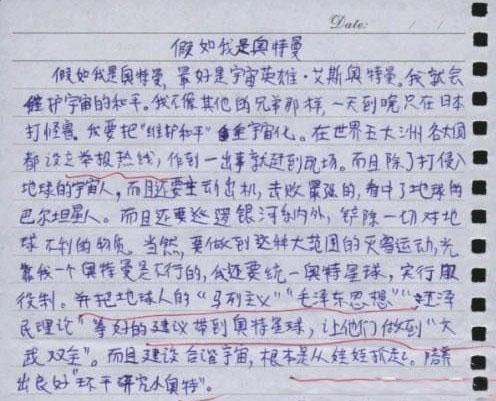 Date:
假如我是奥特曼
假如我是奥特曼,最好是宇宙英雄·艾斯奥特曼。我就会
维护宇宙的和平。我不像其他的兄弟那样,一天到晚只在日本
打怪兽。我要把“维护和平”宇宙化。在世界五大洲各大国
都设立举报热线,作到一出事就赶到现场。而且除了打侵入
地球的宇宙人,而且还要主动出机,击败最强的,看中了地球的
巴尔坦星人。而且还要巡逻银河系内外,铲除一切对地
球不利的物质。当然,要做到这种大范围的灭害运动,光
靠我一个奥特曼是不行的,我还要统一奥特星球,实行服
役制。并把地球人的“马列主义”“毛泽东思想”“泽
民理论”等好的建议带到奥特星球,让他们做到“文
武双全”。而且建设合谐宇宙,根本是从娃娃抓起。培养
出良好“环干研究小奥特”。